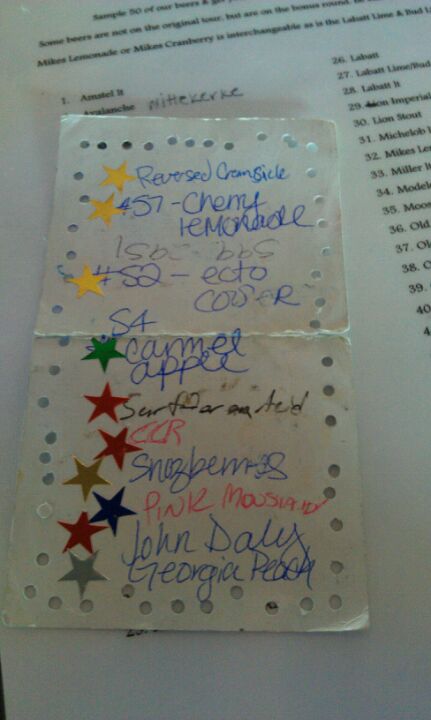 Sample 50 of our beers & get
Some beers are not on the original tour, but are on the bonus round.
Mikes Lemonade or Mikes Cranberry is interchangeable as is the Labatt Lime & Bud
1. Amstel lt
Avalanche
26. Labatt
27. Labatt Lime/Bud
28. Labatt lt
29. Lion Imperial
30. Lion Stout
31. Michelob
32. Mikes Lem
33. Miller
34. Model
35. Moo
36. Old
37. Ol
38. O
39.
40
4
Reversed Cremsicle
#57 - Cherry
lemonade
#52 - ecto
cooler
54
carmel
apple
Surfer on Acid
CCR
Snozberries
Pink
John Daly
Georgia Peach